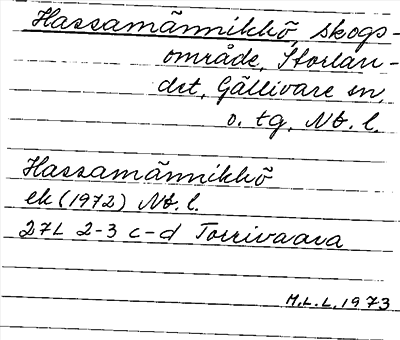 Hassamännikkö, skogs-
område, Storlan-
det, Gällivare sn,
o. tg, Nb. l.
Hassamännikkö
ek (1972) Nb. l.
27L 2-3 c-d Torrivaara
M.L.L. 1973